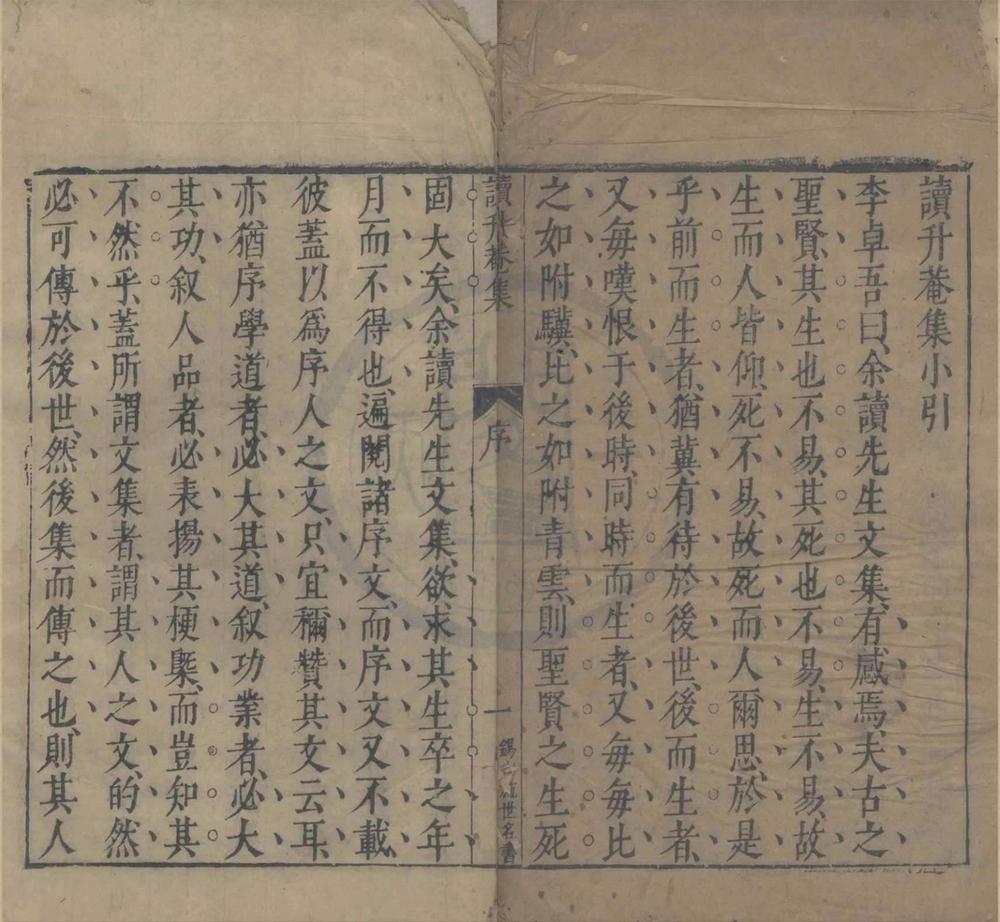 讀升菴集小引
李卓吾曰、余讀先生文集、有感焉、夫古之
聖賢、其生也不易、其死也不易、生不易、故
生而人皆仰、死不易、故死而人爾思、於是
乎前而生者、猶冀有待於後世、後而生者、
又每嘆恨于後時、同時而生者、又每每比
之如附驥、比之如附青雲、則聖賢之生死
讀升菴集 序 一
世名書
固大矣、余讀先生文集、欲求其生卒之年
月而不得也、遍閱諸序文、而序文又不載、
彼蓋以爲序人之文、只宜稱贊其文云耳、
亦猶序學道者、必大其道、叙功業者、必大
其功、叙人品者、必表揚其梗槩、而豈知其
不然乎、蓋所謂文集者、謂其人之文、的然
必可傳於後世、然後集而傳之也、則其人